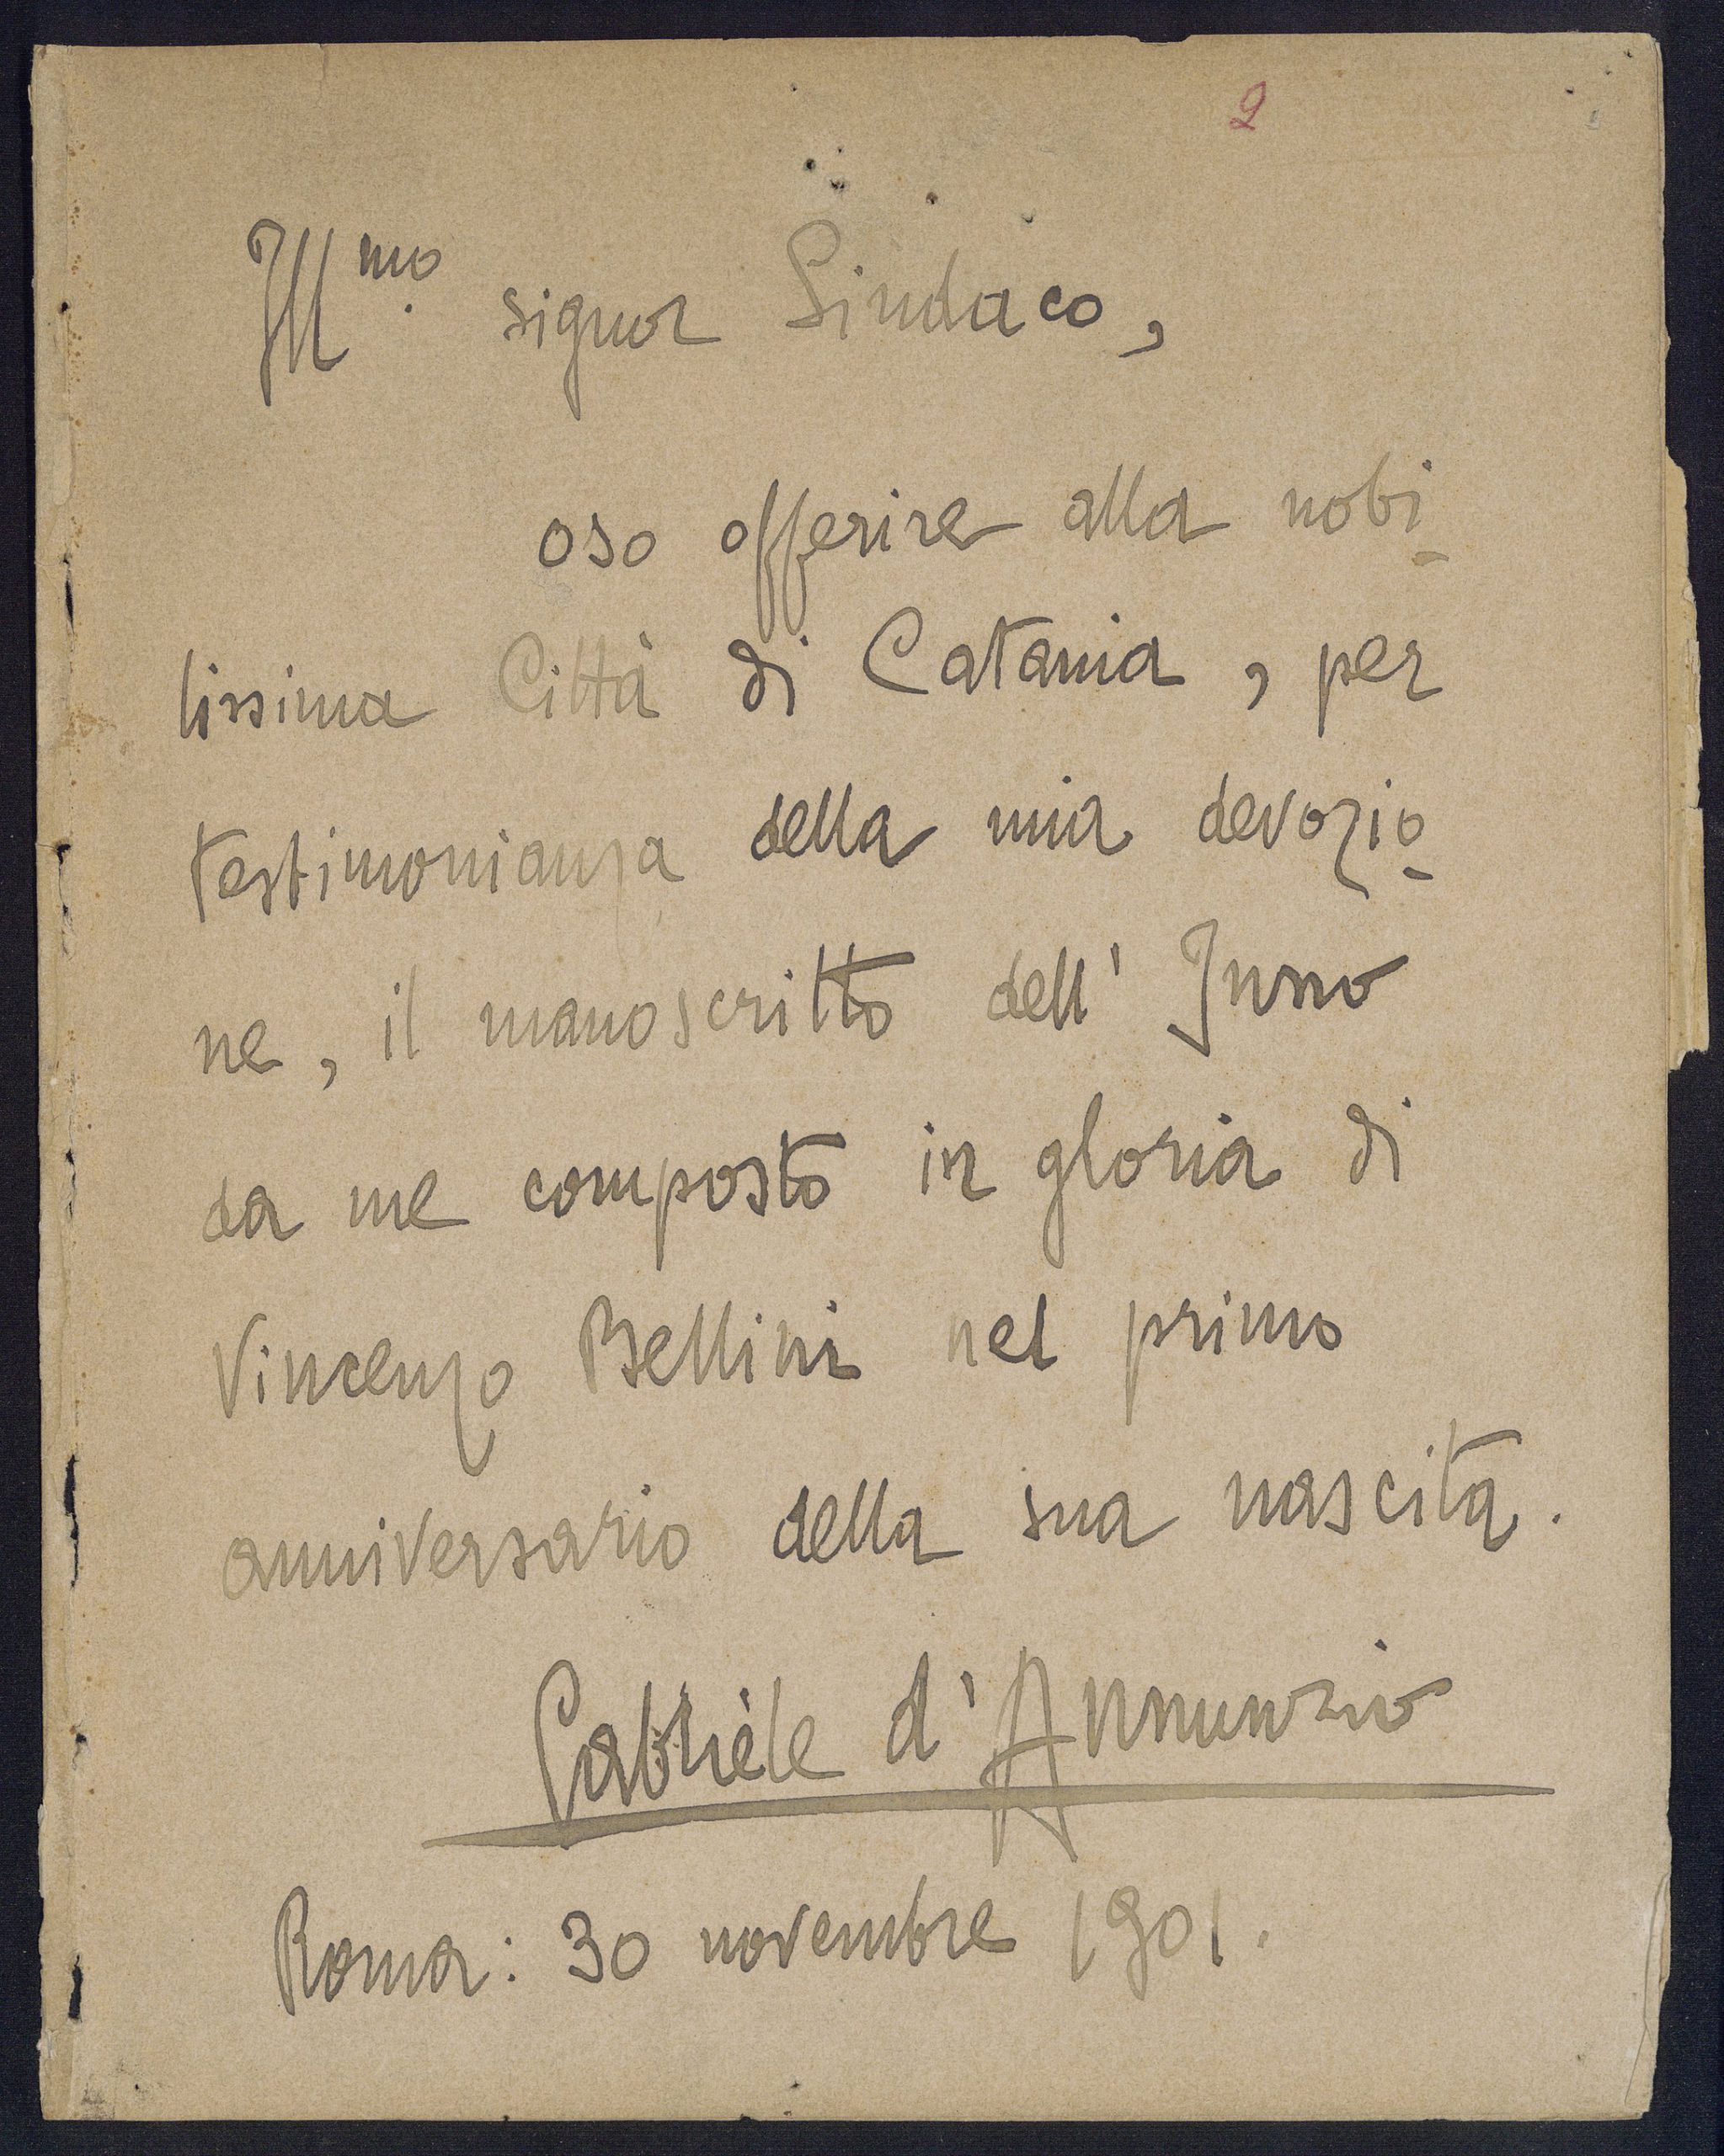 2
Ill.mo signor Sindaco,
oso offerire alla nobi-
lissima Città di Catania, per
testimonianza della mia devozio-
ne, il manoscritto dell' Inno
da me composto in gloria di
Vincenzo Bellini nel primo
anniversario della sua nascita.
Gabriele d'Annunzio
Roma: 30 novembre 1901.